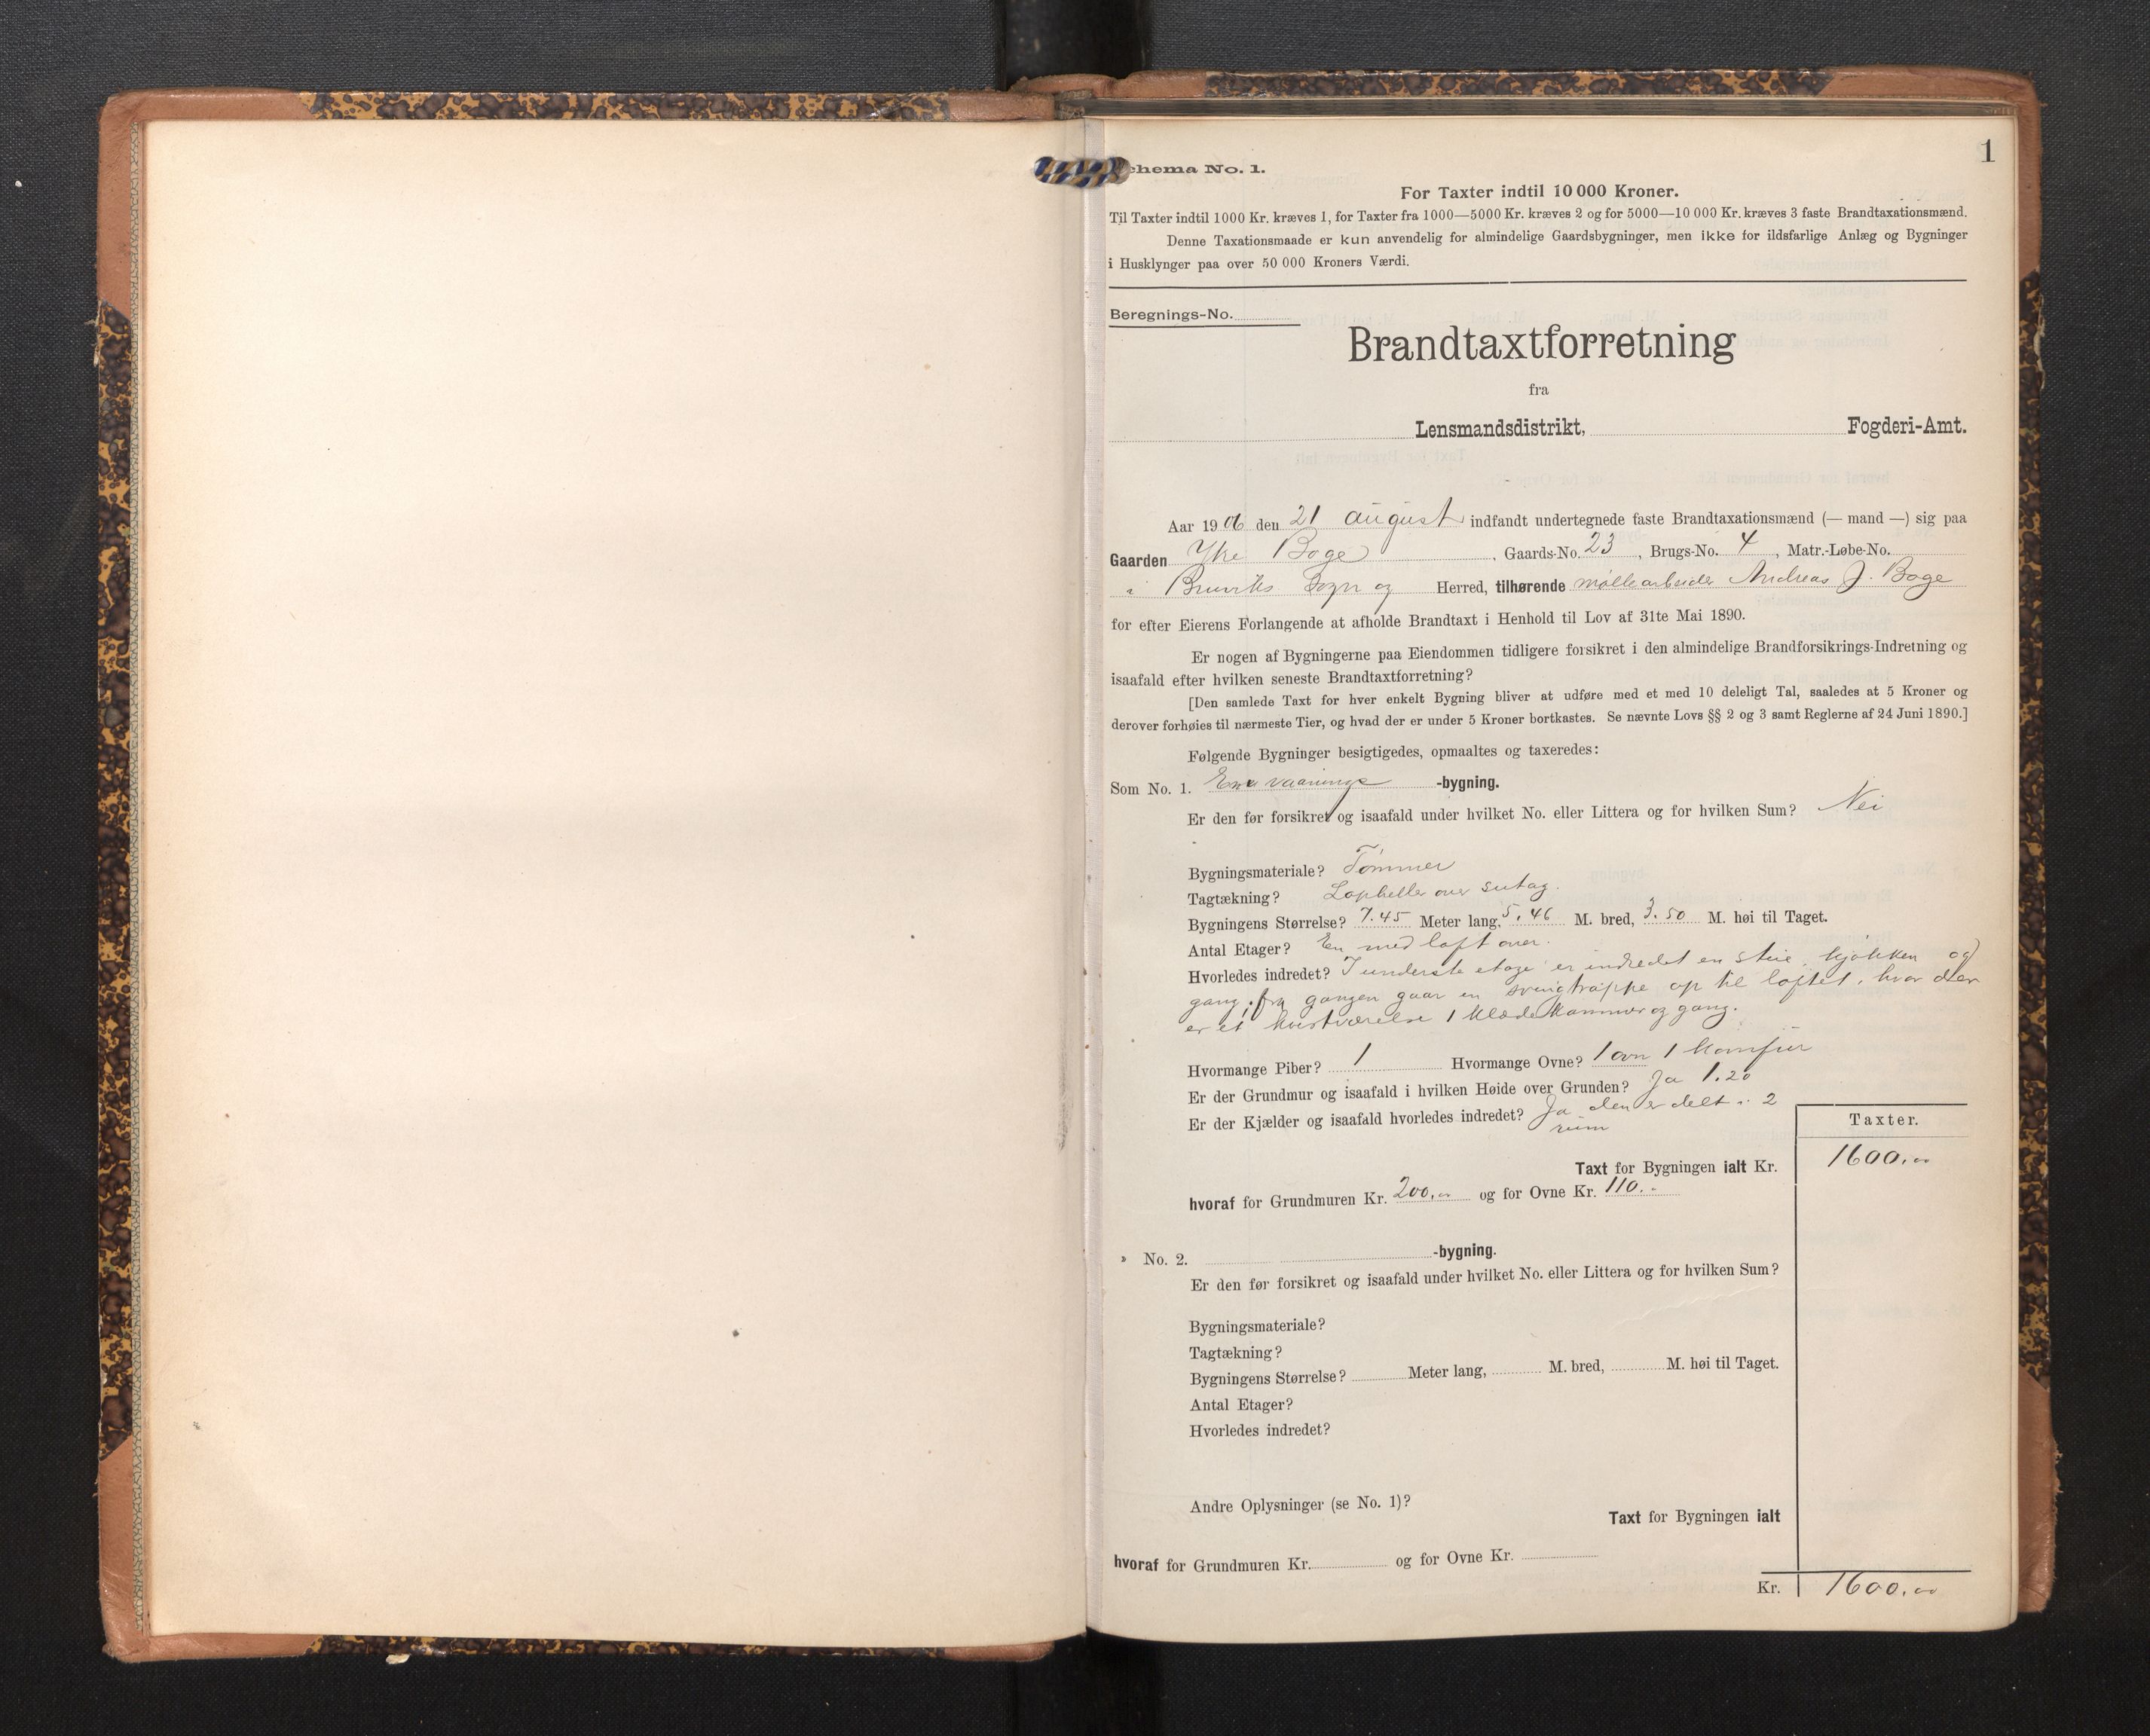 1
chema No. 1.
For Taxter indtil 10 000 Kroner.
Til Taxter indtil 1000 Kr. kræves 1, for Taxter fra 1000—5000 Kr. kræves 2 og for 5000—10 000 Kr. kræves 3 faste Brandtaxationsmænd.
Denne Taxationsmaade er kun anvendelig for almindelige Gaardsbygninger, men ikke for ildsfarlige Anlæg og Bygninger
i Husklynger paa over 50 000 Kroners Værdi.
Beregnings-No.
Brandtaxtforretning
fra
Lensmandsdistrikt, Fogderi-Amt.
Aar 1906 den 21 august indfandt undertegnede faste Brandtaxationsmænd (— mand —) sig paa
Gaarden Ytre Boge, Gaards-No. 23, Brugs-No. 4, Matr.-Løbe-No.
i Bruviks Sogn og Herred, tilhørende møllearbeider Andreas J. Boge
for efter Eierens Forlangende at afholde Brandtaxt i Henhold til Lov af 31te Mai 1890.
Er nogen af Bygningerne paa Eiendommen tidligere forsikret i den almindelige Brandforsikrings-Indretning og
isaafald efter hvilken seneste Brandtaxtforretning?
[Den samlede Taxt for hver enkelt Bygning bliver at udføre med et med 10 deleligt Tal, saaledes at 5 Kroner og
derover forhøies til nærmeste Tier, og hvad der er under 5 Kroner bortkastes. Se nævnte Lovs §§ 2 og 3 samt Reglerne af 24 Juni 1890.]
Følgende Bygninger besigtigedes, opmaaltes og taxeredes:
Som No. 1. vaanings -bygning.
Er den før forsikret og isaafald under hvilket No. eller Littera og for hvilken Sum? Nei
Bygningsmateriale? Tømmer
Tagtækning? Lapheller over sutag.
Bygningens Størrelse? 7.45 Meter lang, 5.46 M. bred, 3.50 M. høi til Taget.
Antal Etager? En med loft over.
Hvorledes indredet? I underste etage er indredet en stue, kjøkken og
gang; fra gangen gaar en svingtrappe op til loftet, hvor der
er et 1 klædekammer og gang.
Hvormange Piber? 1 Hvormange Ovne? 1 ovn 1 komfur
Er der Grundmur og isaafald i hvilken Høide over Grunden? Ja 1.20
Er der Kjælder og isaafald hvorledes indredet? Ja den er delt i 2
rum
Taxter.
Taxt for Bygningen ialt Kr. 1600,00
hvoraf for Grundmuren Kr. 200,00 og for Ovne Kr. 110.-
» No. 2. -bygning.
Er den før forsikret og isaafald under hvilket No. eller Littera og for hvilken Sum?
Bygningsmateriale?
Tagtækning?
Bygningens Størrelse? Meter lang, M. bred, M. høi til Taget.
Antal Etager?
Hvorledes indredet?
Andre Oplysninger (se No. 1)?
Taxt for Bygningen ialt
hvoraf for Grundmuren Kr. og for Ovne Kr.
Kr. 1600,00